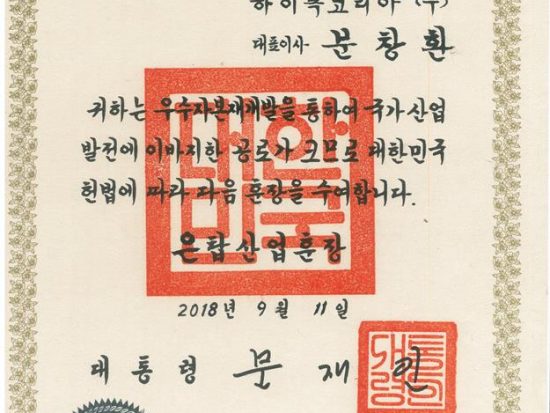 하이록코리아 (주)
대표이사 문창환
귀하는 우수자본재개발을 통하여 국가산업
발전에 이바지한 공로가 크므로 대한민국
헌법에 따라 다음 훈장을 수여합니다.
은탑산업훈장
2018년 9월 11일
대통령 문재인